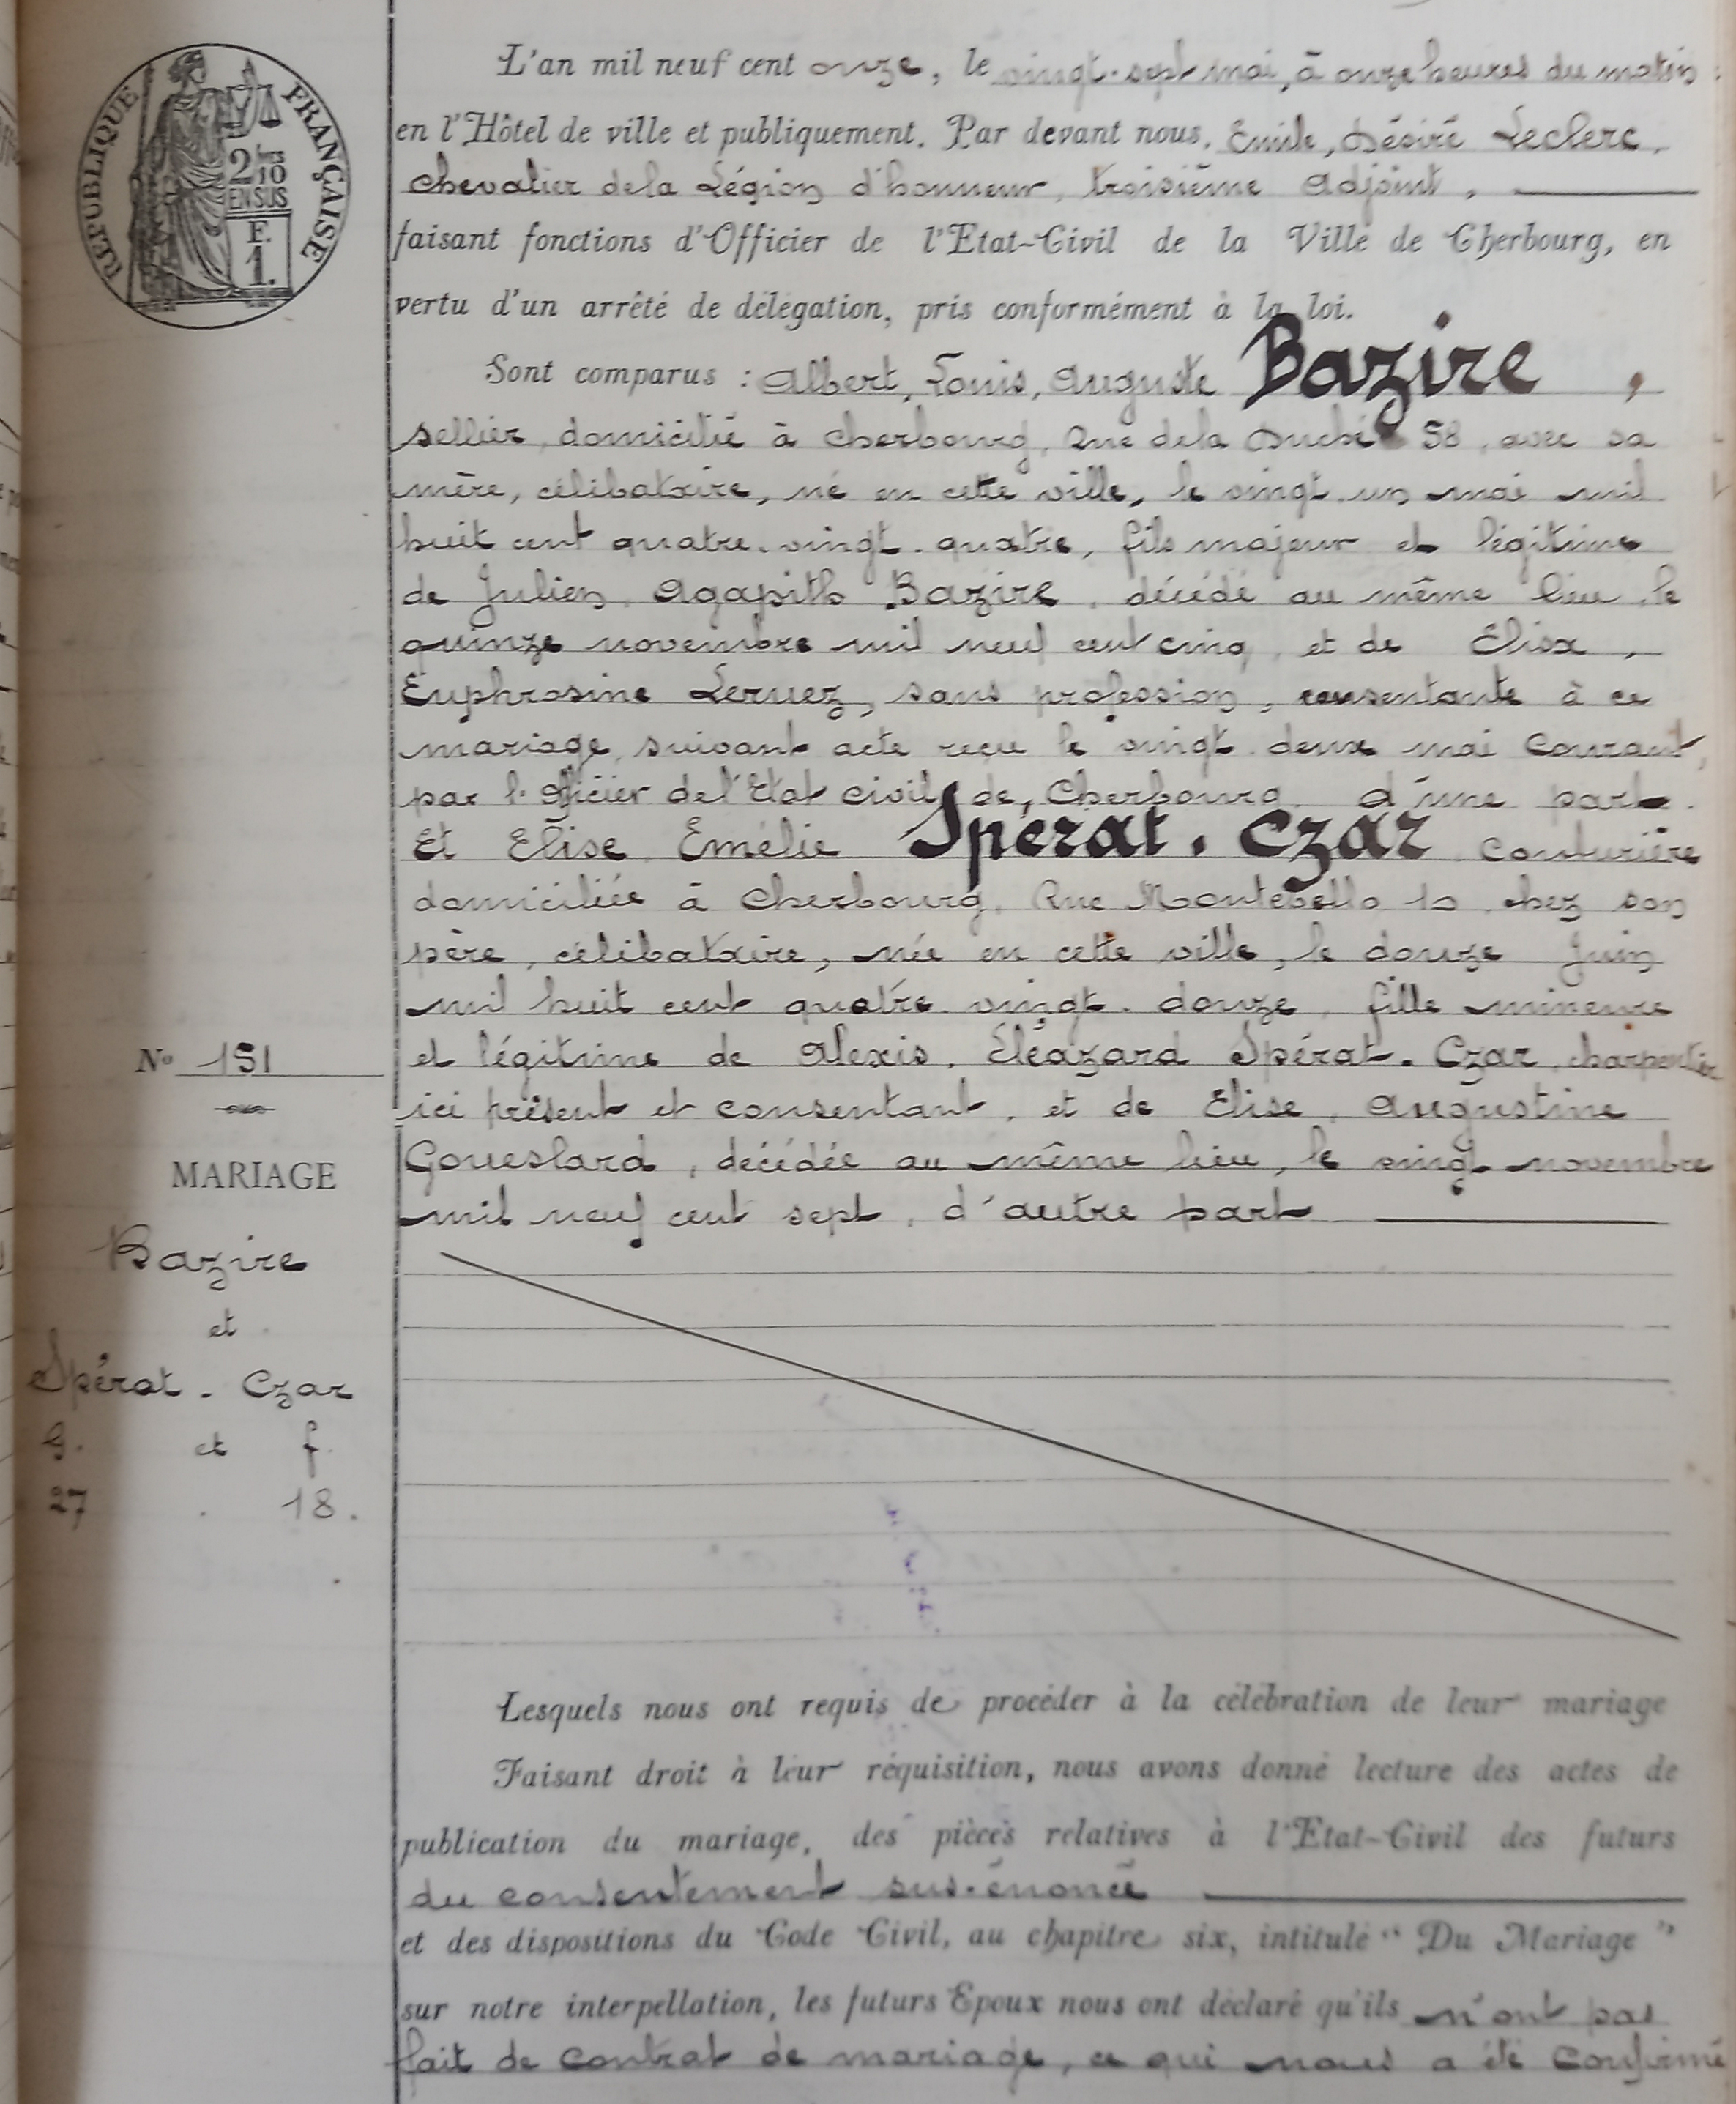 RÉPUBLIQUE FRANÇAISE
2 fres
/10
EN SUS
E.
1.
L'an mil neuf cent onze, le vingt-sept mai, à onze heures du matin
en l'Hôtel de ville et publiquement. Par devant nous, Emile, Désiré Leclerc,
chevalier de la Légion d'honneur, troisième adjoint,
faisant fonctions d'Officier de l'Etat-Civil de la Ville de Cherbourg, en
vertu d'un arrêté de délégation, pris conformément à la loi.
Sont comparus : Albert, Louis, Auguste Bazire,
sellier, domicilié à Cherbourg, Rue de la Duché 58, avec sa
mère, célibataire, né en cette ville, le vingt-un mai mil
huit cent quatre-vingt-quatre, fils majeur et légitime
de Julien, Agapith Bazire, décédé au même lieu, le
quinze novembre mil neuf cent cinq, et de Elisa,
Euphrosine Leruez, sans profession, consentante à ce
mariage, suivant acte reçu le vingt-deux mai courant,
par l'officier de l'Etat civil de Cherbourg, d'une part.
Et Elise, Emélie Spérat-Czar, couturière
domiciliée à Cherbourg, Rue Montebello 10, chez son
père, célibataire, née en cette ville, le douze Juin
mil huit cent quatre-vingt-douze, fille mineure
et légitime de Alexis, Eléazard Spérat-Czar, charpentier
ici présent et consentant, et de Elise, Augustine
Goueslard, décédée au même lieu, le vingt novembre
mil neuf cent sept, d'autre part
N° 151
MARIAGE
Bazire
et
Spérat-Czar
g. et f.
27 . 18.
Lesquels nous ont requis de procéder à la célébration de leur mariage
Faisant droit à leur réquisition, nous avons donné lecture des actes de
publication du mariage, des pièces relatives à l'Etat-Civil des futurs
du consentement sus-énoncé
et des dispositions du Code Civil, au chapitre six, intitulé " Du Mariage "
sur notre interpellation, les futurs Epoux nous ont déclaré qu'ils n'ont pas
fait de contrat de mariage, ce qui nous a été confirmé